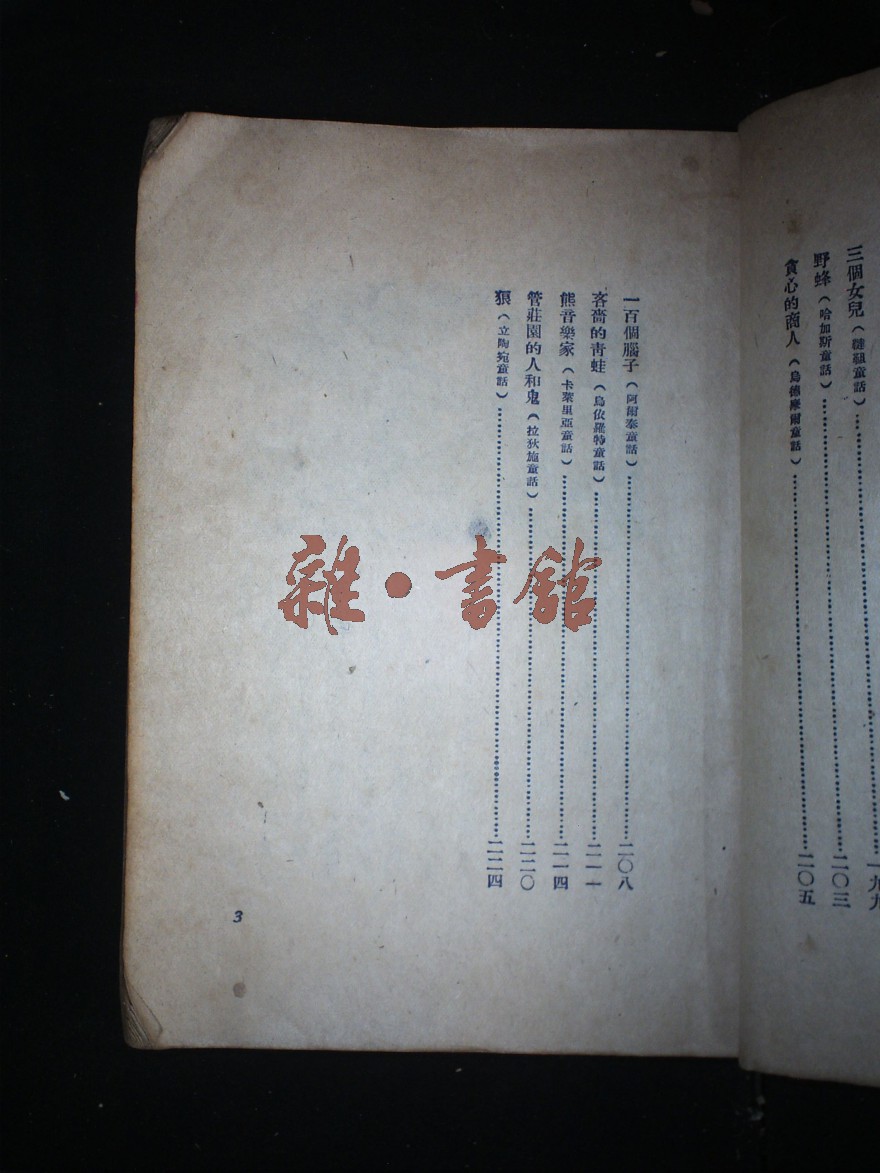 三個女兒(韃靼童話)…一九九
野蜂(哈加斯童話)…二〇三
貪心的商人(烏德摩爾童話)…二〇五
一百個腦子(阿爾泰童話)…二〇八
吝嗇的青蛙(烏依羅特童話)…二一一
熊音樂家(卡萊里亞童話)…二一四
管莊園的人和鬼(拉狄施童話)…二二〇
狼(立陶宛童話)…二二四
3
雜·書館